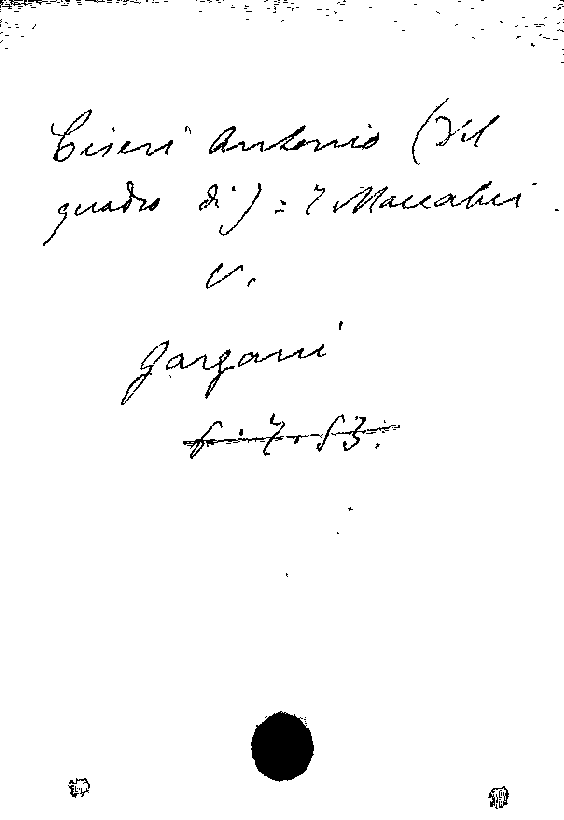 Ciseri Antonio (Del
quadro di) = I Maccabei
V.
Gargani
6.7.53.